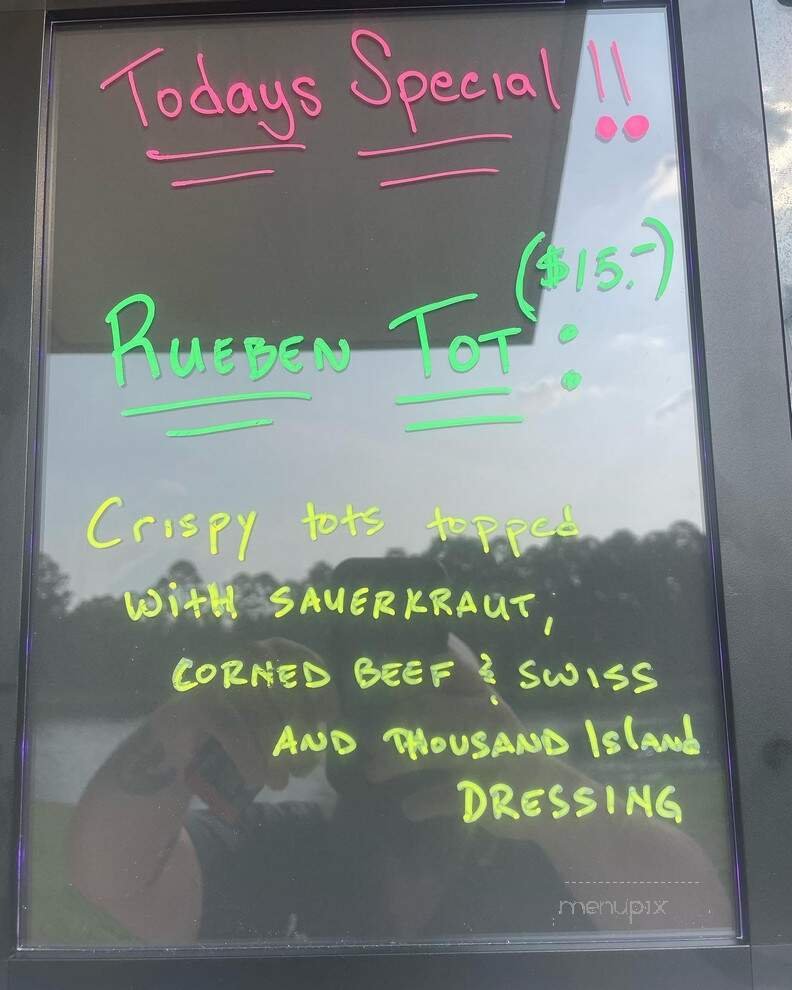 Todays Special!!
($15.-)
RUEBEN TOT:
Crispy tots topped
WitH SAUERKRAUT,
CORNED BEEF & SWISS
AND THOUSAND Island
DRESSING
menupix